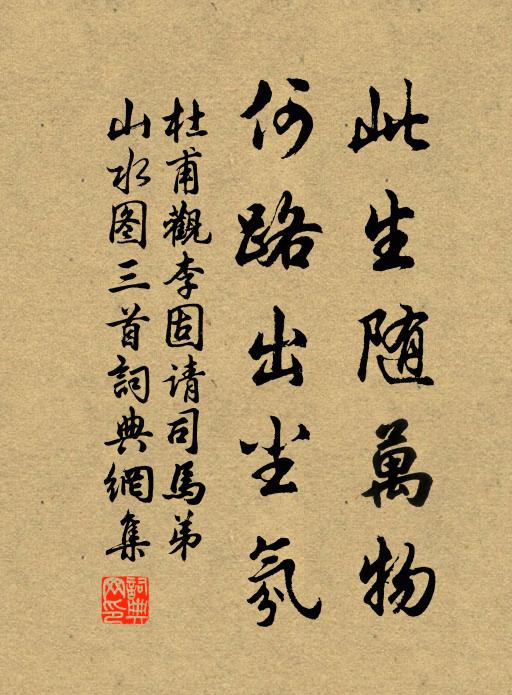 此生随萬物
何路出尘氛
杜甫觀李固请司馬弟
山水图三首詞典網集
詞典網印